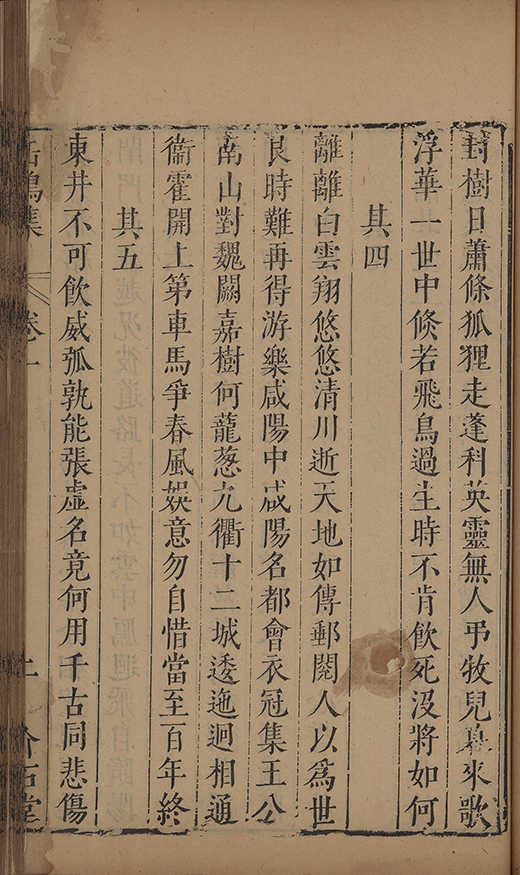 封樹日蕭條狐狸走蓬科英靈無人弔牧兒暮來歌
浮華一世中倐若飛鳥過生時不肯飲死沒將如何
其四
離離白雲翔悠悠清川逝天地如傳郵閱人以爲世
良時難再得游樂咸陽中咸陽名都會衣冠集王公
南山對魏闕嘉樹何蘢蔥九衢十二城逶迤迴相通
衞霍開上第車馬爭春風娛意勿自惜當至百年終
其五
東井不可飲威弧孰能張虛名竟何用千古同悲傷
鳴集 卷一 上 介石堂